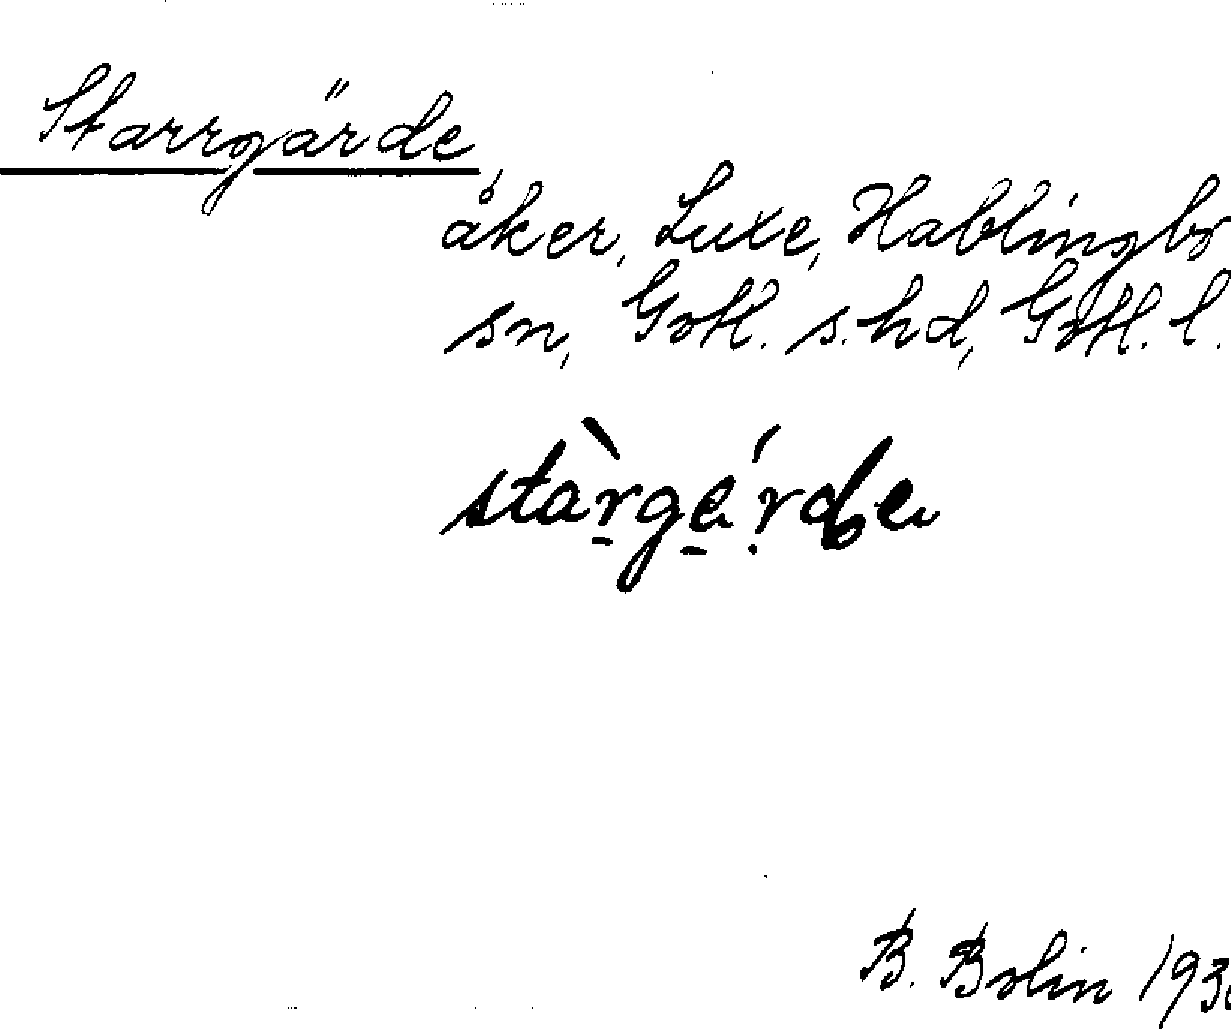 Starrgärde
åker, Luxe, Hablingbo
sn, Gotl. s. hd, Gotl. l.
stàrgärde
B. Bolin